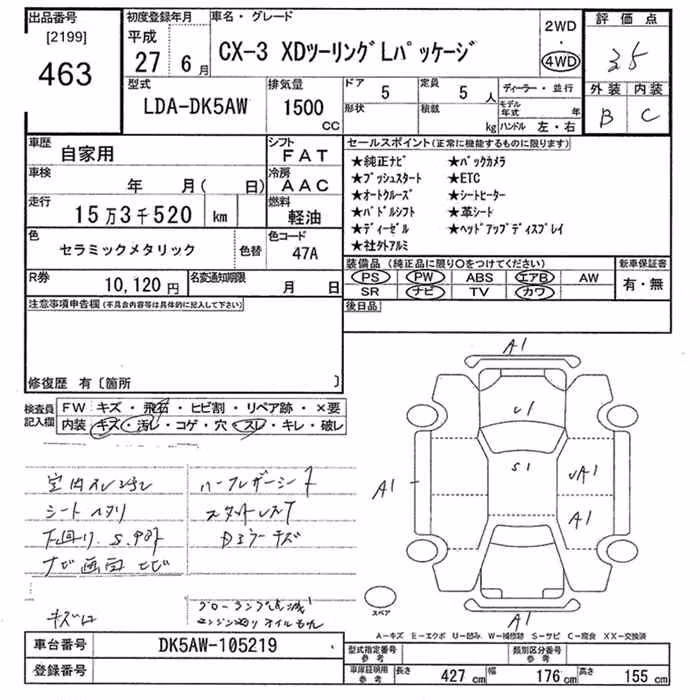 出品番号 初度登録年月 車名・グレード 評価点
[2199] 平成 2WD
463 27 6月 CX-3 XDツーリングLパッケージ ・ 3.5
4WD
型式 排気量 ドア 定員 ディーラー・並行 外装 内装
LDA-DK5AW 1500 CC 5 5人 モデル年式 年 B C
形状 積載 kg ハンドル 左・右
車歴 自家用 シフト FAT セールスポイント(正常に機能するものに限ります)
★純正ナビ ★バックカメラ
車検 年 月( 日) 冷房 AAC ★プッシュスタート ★ETC
★オートクルーズ ★シートヒーター
走行 15万3千520 km 燃料 軽油 ★パドルシフト ★革シート
★ディーゼル ★ヘッドアップディスプレイ
色 セラミックメタリック 色替 色コード 47A ★社外アルミ
装備品(純正品に限り○をつけてください) 新車保証書
R券 10,120円 名変通知期限 月 日 PS PW ABS エアB AW 有・無
SR ナビ TV カワ
注意事項申告欄(不具合内容等は具体的に記入して下さい) 後日品
修復歴 有〔箇所 〕
A1
検査員記入欄 FW キズ・飛石・ヒビ割・リペア跡・×要
内装 キズ・汚レ・コゲ・穴・スレ・キレ・破レ
U1
S1
A1
A1
室内スレ ハーフレザーシート
シートヘタリ
下回り S.サビ
ナビ画面
キズ
A1
スペア
A－キズ E－エクボ U－凹み W－補修跡 S－サビ C－腐食 XX－交換済
車台番号 DK5AW-105219 型式指定番号 参考 類別区分番号 参考
登録番号 車庫証明用 参考 長さ 427 cm 幅 176 cm 高さ 155 cm